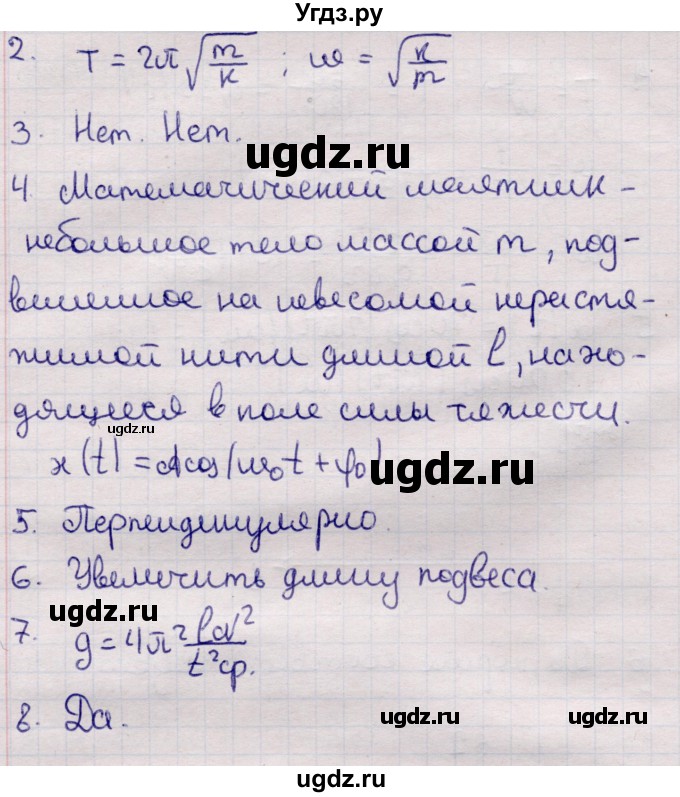 Угдз.ру
2. T = 2π√(m/k) ; ω = √(k/m)
3. Нет. Нет.
ugdz.ru
4. Математический маятник -
небольшое тело массой m, под-
вешенное на невесомой нерастя-
жимой нити длиной l, нахо-
дящееся в поле силы тяжести.
ugdz.ru
x(t) = Acos(ω₀t + φ₀)
ugdz.ru
5. Перпендикулярно.
6. Увеличить длину подвеса.
ugdz.ru
7. g = 4π² lN²/t²ср.
8. Да.
ugdz.ru
ugdz.ru
ugdz.ru